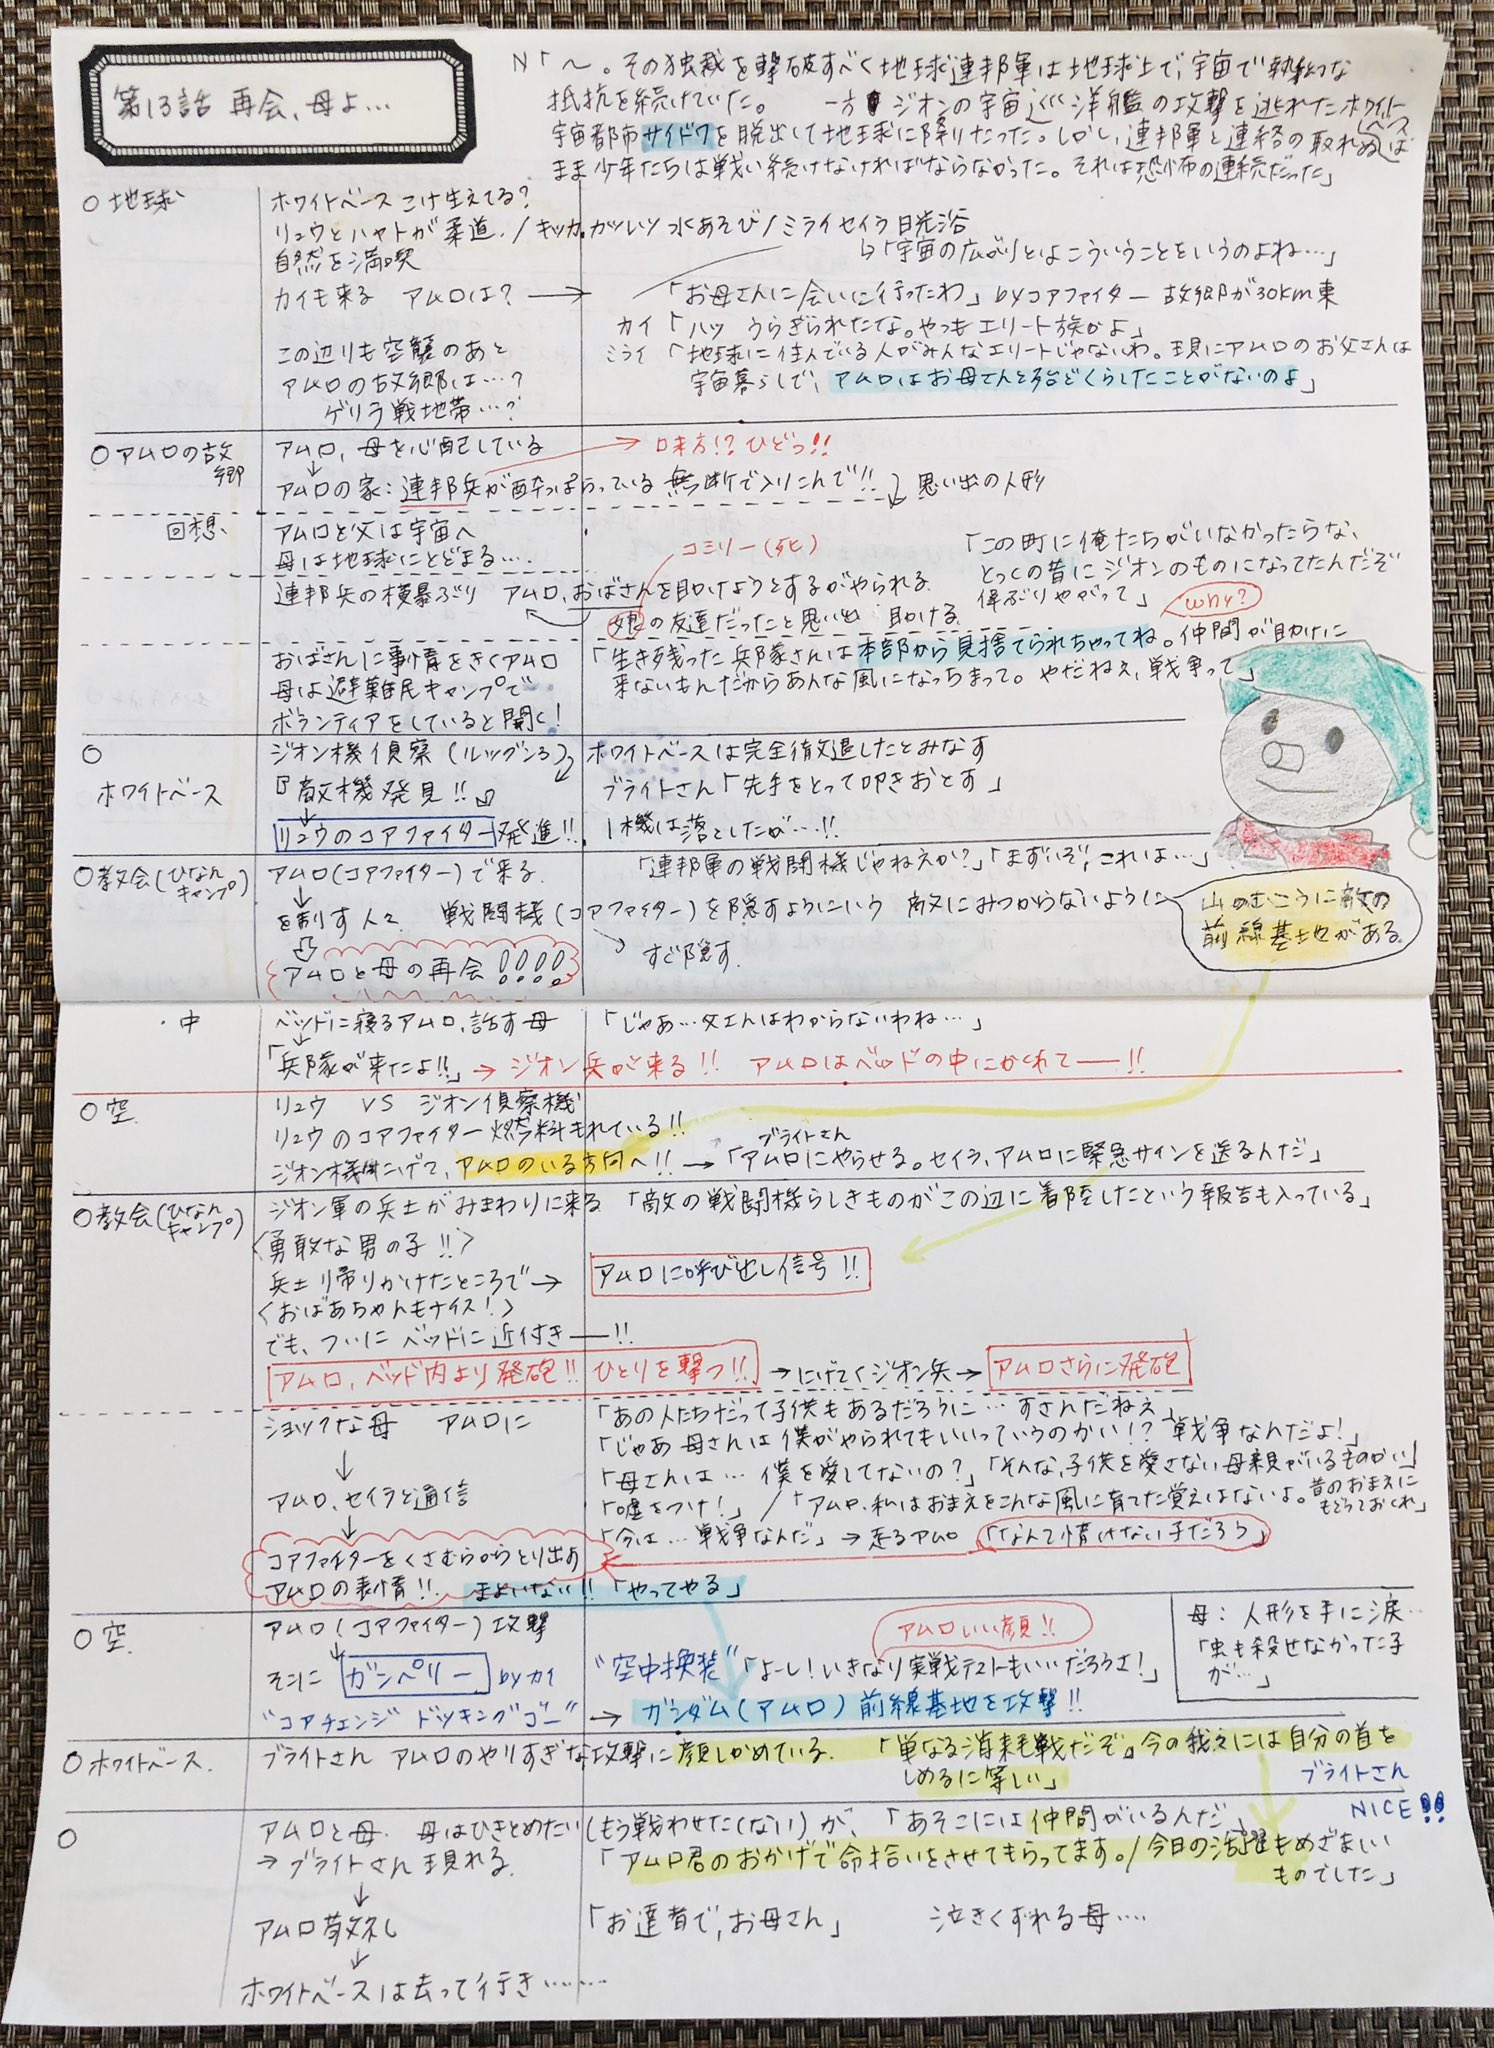 第13話 再会、母よ…
N「～。その独裁を撃破すべく地球連邦軍は地球上で、宇宙で執拗な
抵抗を続けていた。 一方 ジオンの宇宙巡洋艦の攻撃を逃れたホワイトベースは
宇宙都市サイド7を脱出して地球に降りたった。しかし、連邦軍と連絡の取れぬ
まま少年たちは戦い続けなければならなかった。それは恐怖の連続だった」
○地球
ホワイトベース こけ生えてる?
リュウとハヤトが柔道、/キッカ、カツ、レツ 水あそび/ミライ セイラ 日光浴
自然を満喫
↳「宇宙の広がりとはこういうことをいうのよね…」
カイも来る アムロは? →
「お母さんに会いに行ったわ」byコアファイター 故郷が30km東
カイ「ハッ うらぎられたな。やつもエリート族かよ」
この辺りも空襲のあと
ミライ「地球に住んでいる人がみんなエリートじゃないわ。現にアムロのお父さんは
アムロの故郷は…?
宇宙暮らしで、アムロはお母さんと殆どくらしたことがないのよ」
ゲリラ戦地帯…?
○アムロの故郷
アムロ、母を心配している
→味方!? ひどっ!!
↓
アムロの家:連邦兵が酔っぱらっている 無断で入りこんで!! 思い出の人形
回想、
アムロと父は宇宙へ
母は地球にとどまる…
コミリー(死)
「この町に俺たちがいなかったらな、
とっくの昔にジオンのものになってたんだぞ
偉ぶりやがって」
連邦兵の横暴ぶり アムロ、おばさんを助けようとするがやられる
娘の友達だったと思い出 助ける
why?
おばさんに事情をきくアムロ
「生き残った兵隊さんは本部から見捨てられちゃってね。仲間が助けに
母は避難民キャンプで
来ないもんだからあんな風になっちまって。やだねぇ、戦争って」
ボランティアをしていると聞く!
○
ホワイトベース
ジオン機偵察(ルッグン3) ホワイトベースは完全撤退したとみなす
『敵機発見!!』
ブライトさん「先手をとって叩きおとす」
↓
リュウのコアファイター発進!! 1機は落としたが…!!
○教会(ひなんキャンプ)
アムロ(コアファイター)で来る
「連邦軍の戦闘機じゃねえか?」「まずいぞ、これは…」
↓
を制す人々 戦闘機(コアファイター)を隠すようにいう 敵にみつからないように
山のむこうに敵の
前線基地がある。
すぐ隠す
アムロと母の再会!!!!
・中
ベッドに寝るアムロ、話す母
「じゃあ…父さんはわからないわね…」
↓
「兵隊が来たよ!!」→ジオン兵が来る!! アムロはベッドの中にかくれて――!!
○空
リュウ VS ジオン偵察機
リュウのコアファイター燃料もれている!!
ブライトさん
ジオン機にげて、アムロのいる方向へ!! →「アムロにやらせる。セイラ、アムロに緊急サインを送るんだ」
○教会(ひなんキャンプ)
ジオン軍の兵士がみまわりに来る 「敵の戦闘機らしきものがこの辺に着陸をしたという報告も入っている」
〈勇敢な男の子!!〉
兵士り帰りかけたところで→
アムロに呼び出し信号!!
〈おばあちゃんもナイス!〉
でも、ついにベッドに近付き――!!
アムロ、ベッド内より発砲!! ひとりを撃つ!! →にげてくジオン兵→ アムロさらに発砲
ショックな母 アムロに
「あの人たちだって子供もあるだろうに… すさんだねえ」
「じゃあ母さんは僕がやられてもいいっていうのかい!? 戦争なんだよ!」
↓
「母さんは… 僕を愛してないの?」「そんな、子供を愛さない母親がいるものかい」
アムロ、セイラと通信
「嘘をつけ!」/「アムロ、私はおまえをこんな風に育てた覚えはないよ。昔のおまえに
もどっておくれ」
↓
「今は…戦争なんだ」→走るアムロ 「なんて情けない子だろう」
コアファイターをくさむらからとり出す
アムロの表情!! まよいない!!「やってやる」
○空
アムロ(コアファイター)攻撃
アムロいい顔!!
母:人形を手に涙…
「虫も殺せなかった子
が…」
↓
そこに ガンペリー by カイ
“空中換装”「よーし!いきなり実戦テストもいいだろうさ!」
“コアチェンジ ドッキングゴー” → ガンダム(アムロ)前線基地を攻撃!!
○ホワイトベース
ブライトさん アムロのやりすぎな攻撃に顔しかめている 「単なる消耗戦だぞ。今の我々には自分の首を
しめるに等しい」
ブライトさん
NICE!!
○
アムロと母 母はひきとめたい(もう戦わせたくない)が、「あそこには仲間がいるんだ」
→ブライトさん現れる
「アムロ君のおかげで命拾いをさせてもらってます。/今日の活躍もめざましい
ものでした」
↓
アムロ敬礼
「お達者で、お母さん」 泣きくずれる母…
↓
ホワイトベースは去って行き………